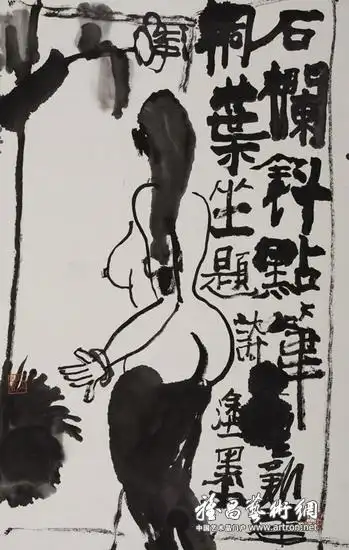 石欄斜點筆
桐葉坐題詩
新建
塗墨
雅昌藝術網
中国艺术品门户 www.artron.net